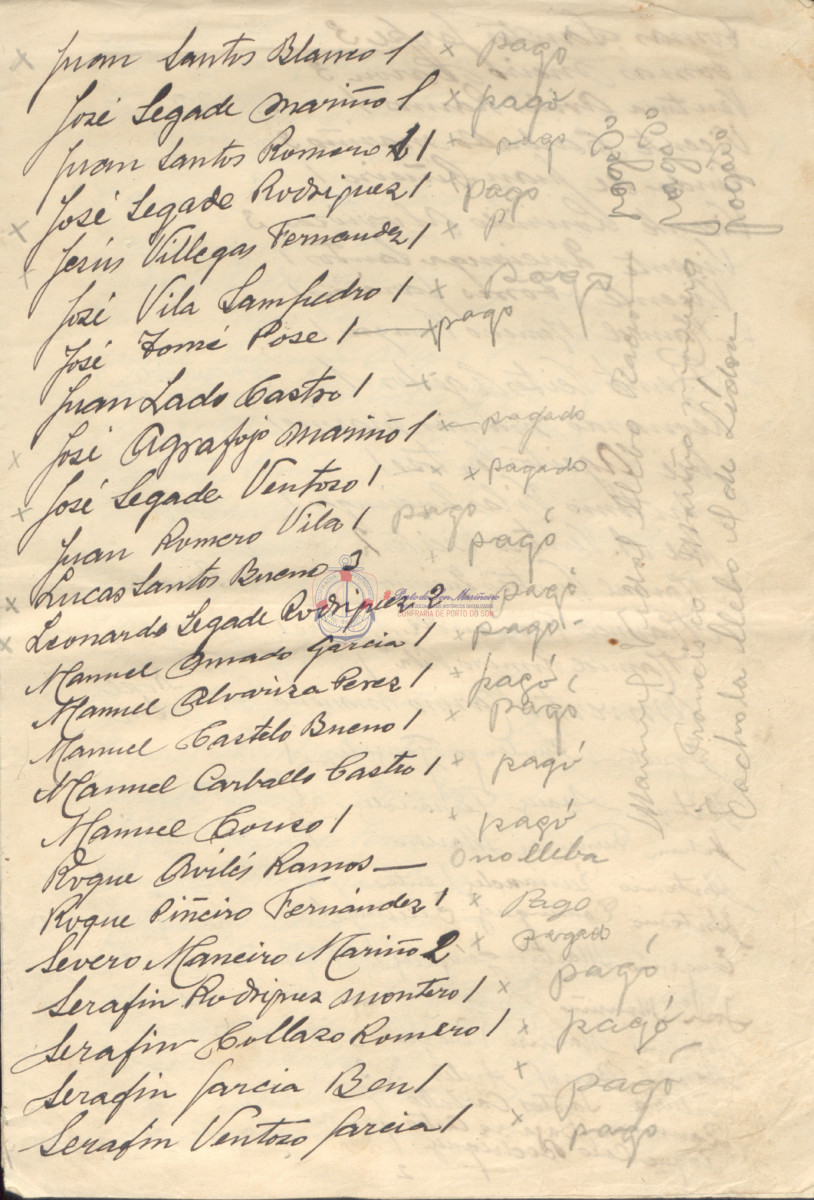 Juan Santos Blanco 1 x pagó
José Segade Mariño 1 x pagó
Juan Santos Romero 1 x pago
José Segade Rodriguez 1 pagó
Jesús Villegas Fernandez 1 x p
José Vila Sampedro 1 x pago
José Tomé Pose 1 — x pagó
Juan Lado Castro 1
José Agrafojo Mariño 1 x pagado
José Segade Ventoso 1 x pagado
Juan Romero Vila 1 pago
Lucas Santos Bueno pagó
Leonardo Segade Rodriguez 2 pagó
Manuel Amado Garcia 1 x pagó
Manuel Alvariza Perez 1 x pagó
Manuel Castelo Bueno 1 x pagó
Manuel Carballo Castro 1 x pagó
Manuel Couso 1 pagó
Roque Avilés Ramos — O no lleba
Roque Piñeiro Fernández 1 x Pago
Severo Maneiro Mariño 2 x pagado
Serafin Rodriguez Montero 1 x pagó
Serafin Collazo Romero 1 x pagó
Serafin Garcia Ben 1 x pagó
Serafin Ventoso Garcia 1 x pago
Manuel Vidal llebo
Francisco Mariño
Cachola llebo el de Lidia
pagado
pagado
pagado
Porto do Son Mariñeiro
CONFRARIA DE PORTO DO SON